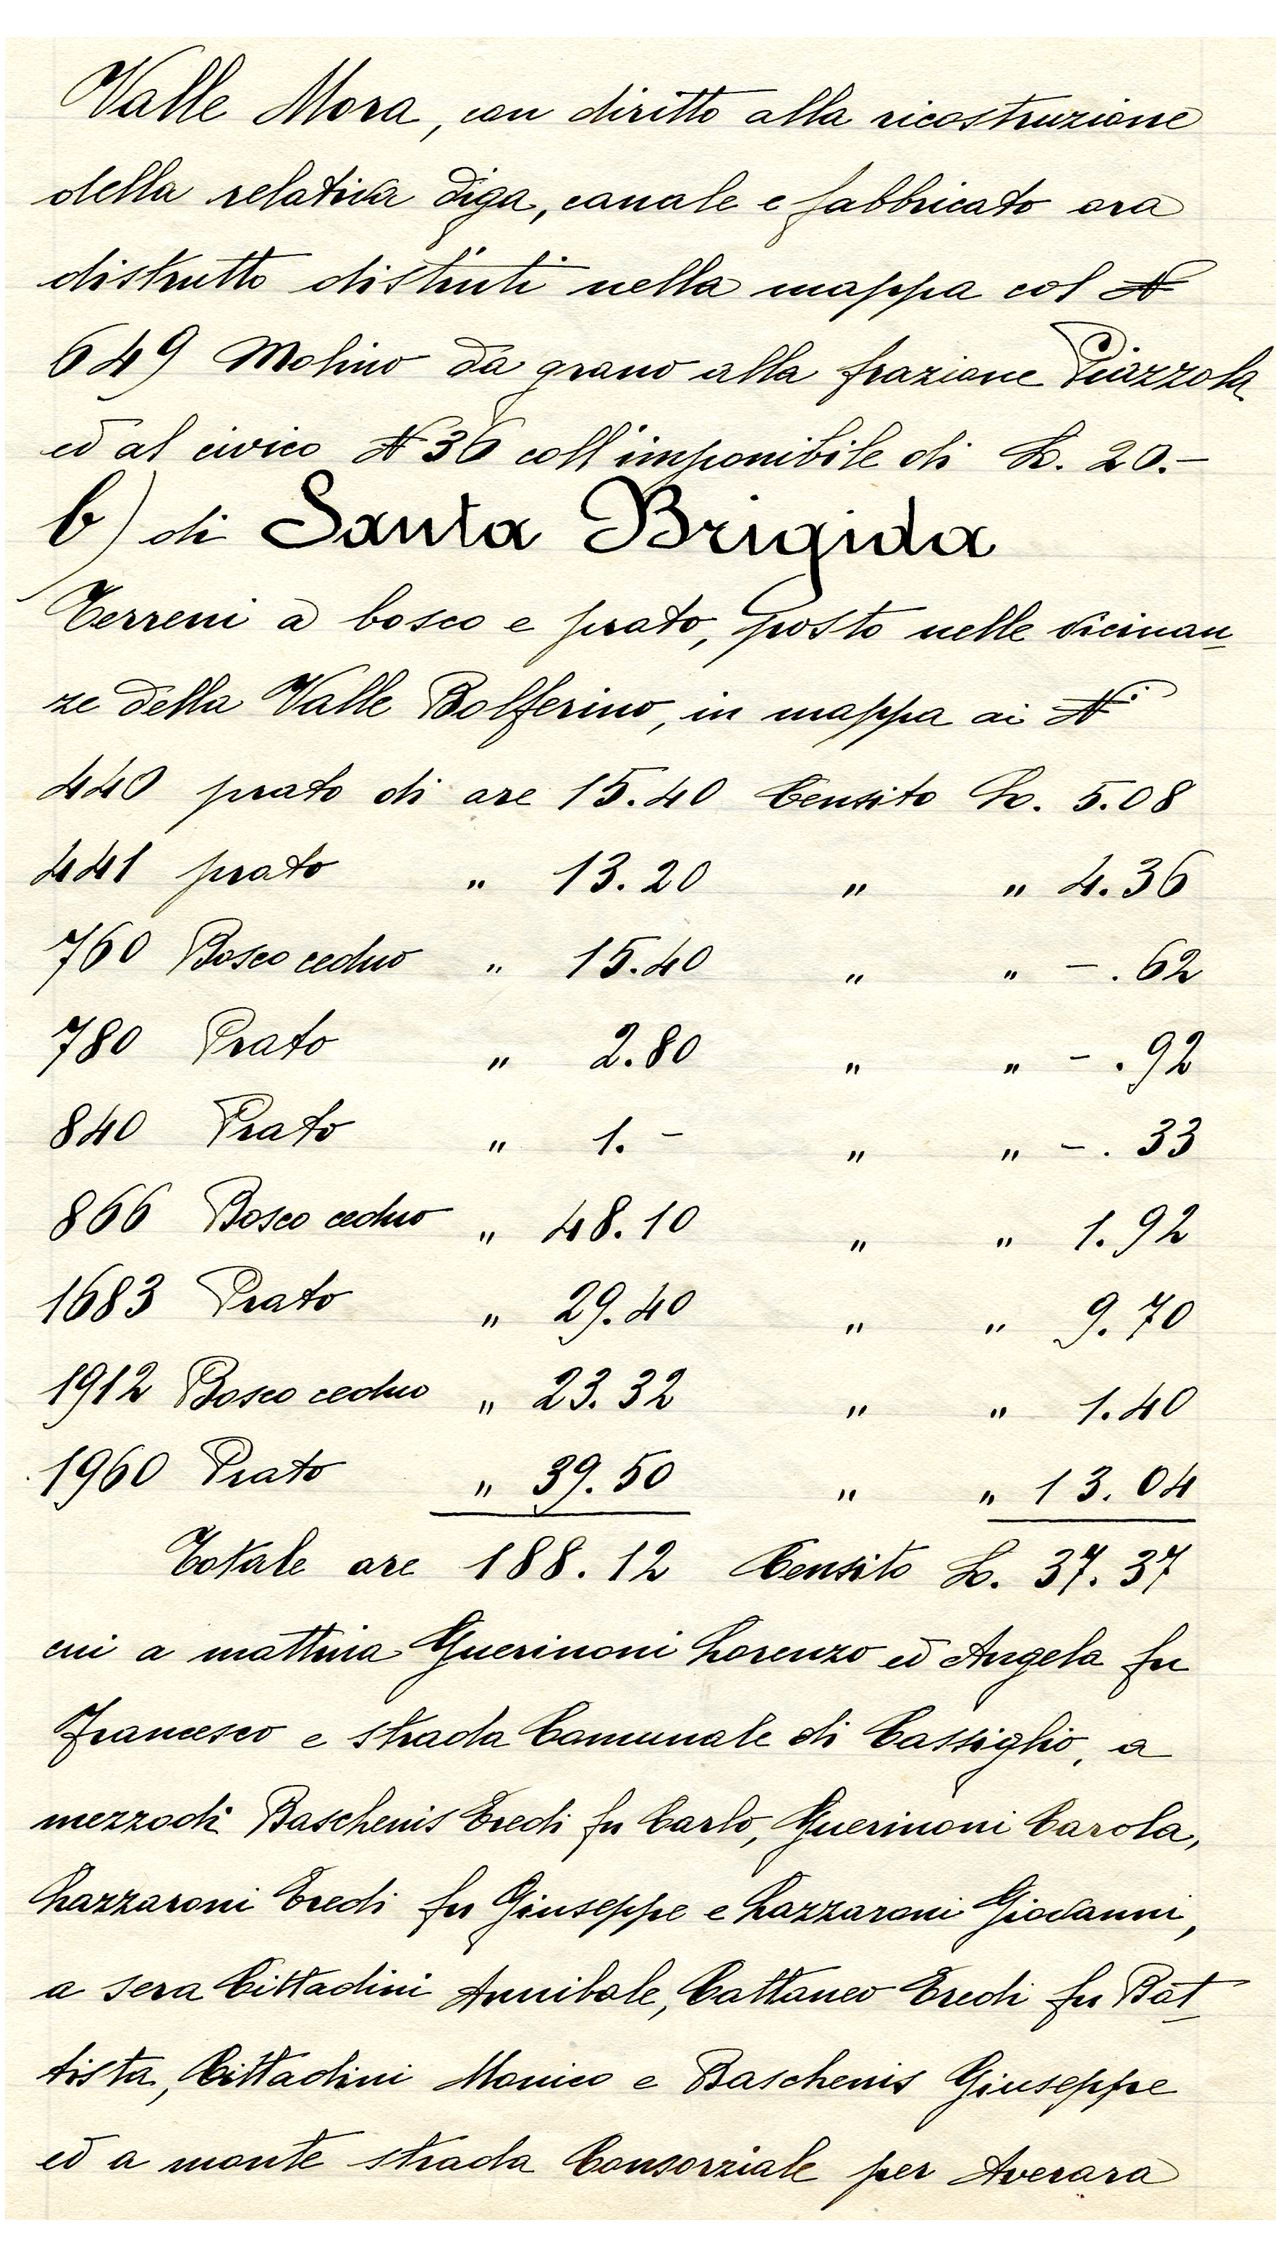 Valle Mora, con diritto alla ricostruzione
della relativa diga, canale e fabbricato ora
distrutto distinti nella mappa col N
649 Molino da grano alla frazione Piazzola
ed al civico N 36 coll'imponibile di L. 20.-
b) di Santa Brigida
Terreni a bosco e prato, posto nelle vicinan
ze della Valle Bolferino, in mappa ai N.i
440 prato di are 15.40 Censito L. 5.08
441 prato " 13.20 " " 4.36
760 Bosco ceduo " 15.40 " " -.62
780 Prato " 2.80 " " -.92
840 Prato " 1.- " " -.33
866 Bosco ceduo " 48.10 " " 1.92
1683 Prato " 29.40 " " 9.70
1912 Bosco ceduo " 23.32 " " 1.40
1960 Prato " 39.50 " " 13.04
Totale are 188.12 Censito L. 37.37
cui a mattina Guerinoni Lorenzo ed Angela fu
Francesco e strada Comunale di Cassiglio, a
mezzodì Baschenis Eredi fu Carlo, Guerinoni Carola,
Lazzaroni Eredi fu Giuseppe e Lazzaroni Giovanni,
a sera Cittadini Annibale, Cattaneo Eredi fu Bat
tista, Cittadini Monico e Baschenis Giuseppe
ed a monte strada Consorziale per Averara